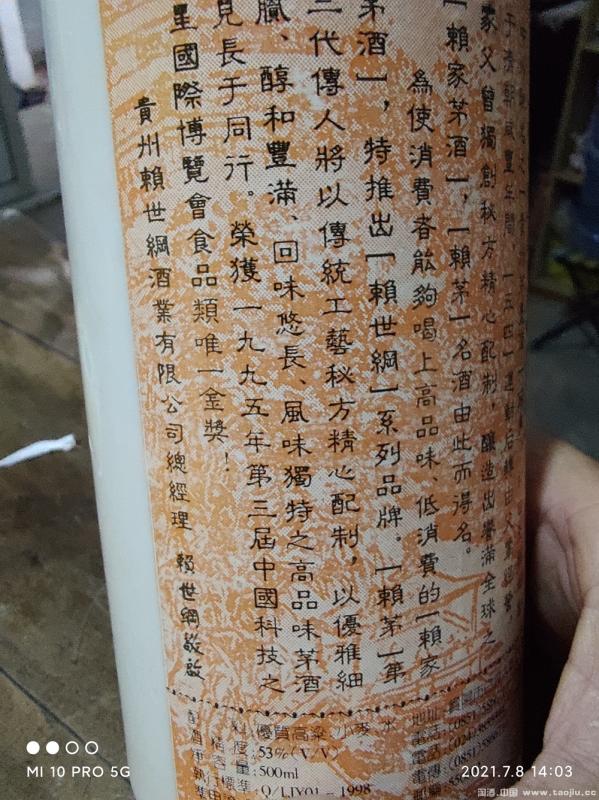 于清朝咸豐年間「五四」運動后 由父輩經營,
家父曾獨創秘方精心配制,釀造出譽滿全球之
「賴家茅酒」,「賴茅」名酒由此而得名。
為使消費者能夠喝上高品味、低消費的「賴家
茅酒」,特推出「賴世綱」系列品牌。「賴茅」第
三代傳人將以傳統工藝秘方精心配制,以優雅細
膩、醇和豐滿、回味悠長、風味獨特之高品味茅酒
見長于同行。榮獲一九九五年第三屆中國科技之
星國際博覽會食品類唯一金獎!
貴州賴世綱酒業有限公司總經理 賴世綱敬啟
料:優質高粱 小麥 水
度:53%(V/V)
量:500ml
Q/LJY01-1998
MI 10 PRO 5G
2021.7.8 14:03
国酒.中国 - www.taojiu.cc